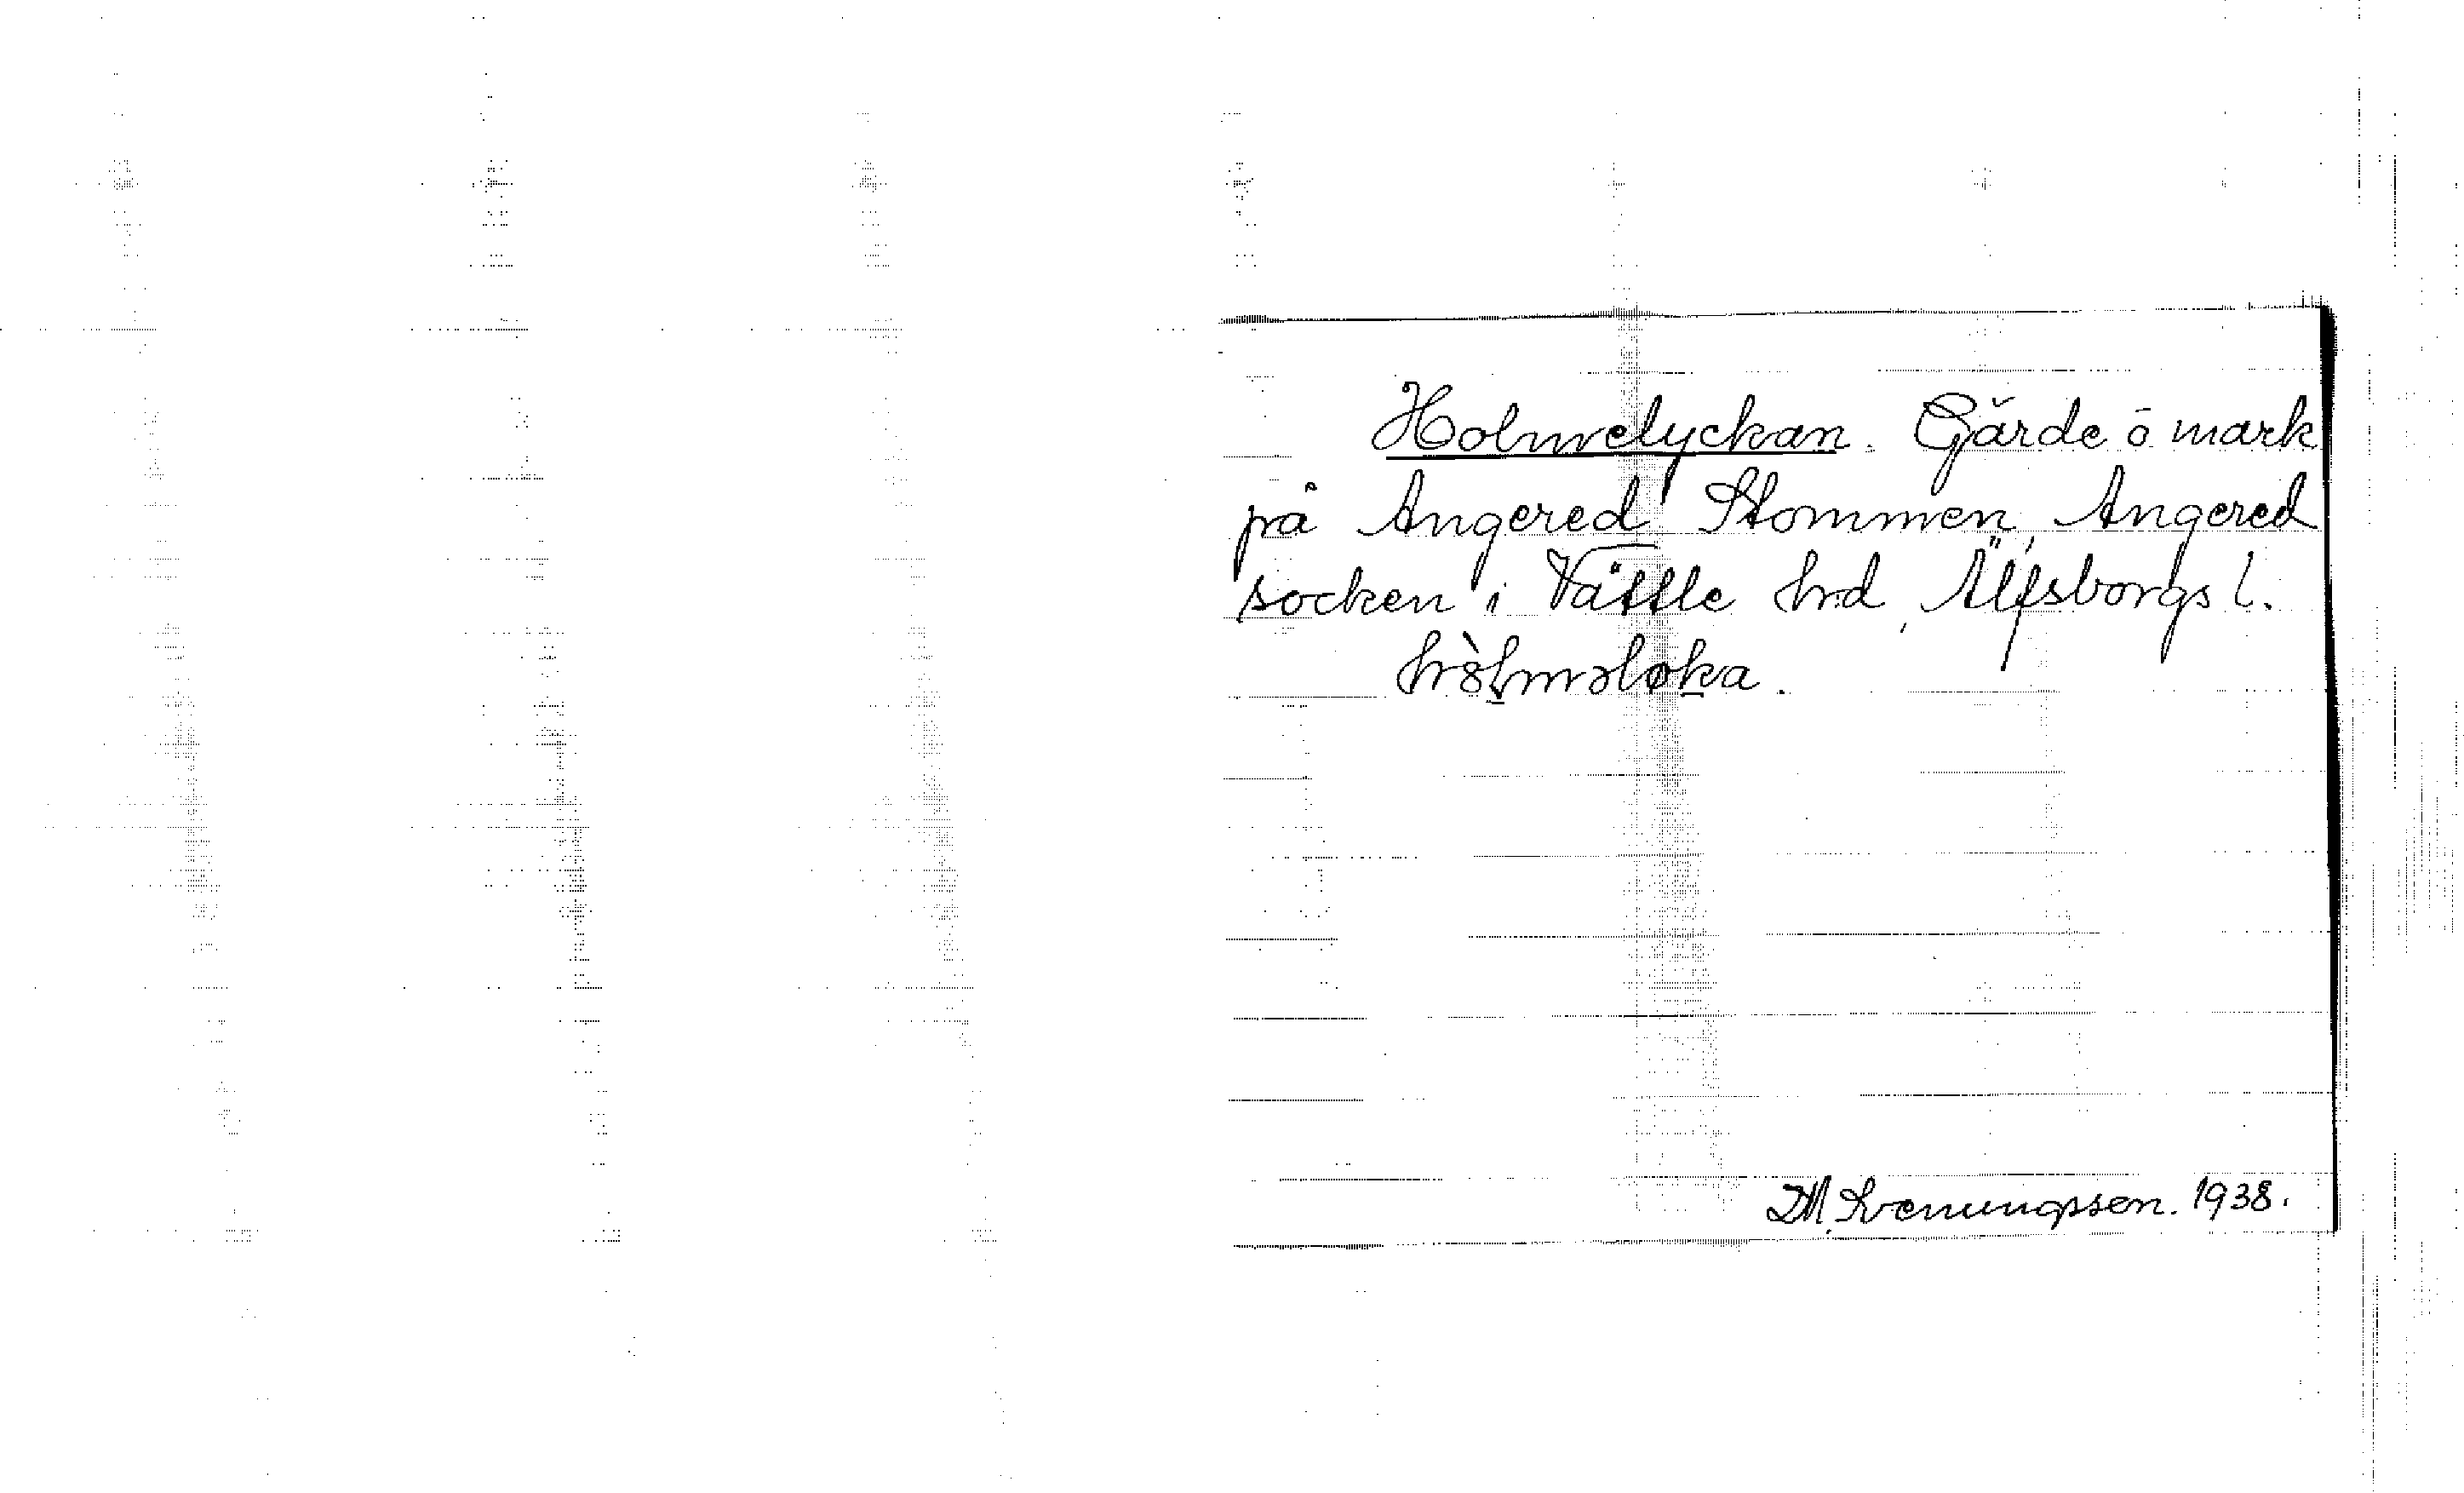 Holmelyckan. Gärde o mark
på Angered Stommen, Angered
socken i Vättle hrd, Älfsborgs l.
hòlmǝløka.
D.M. Svenungsson. 1938.